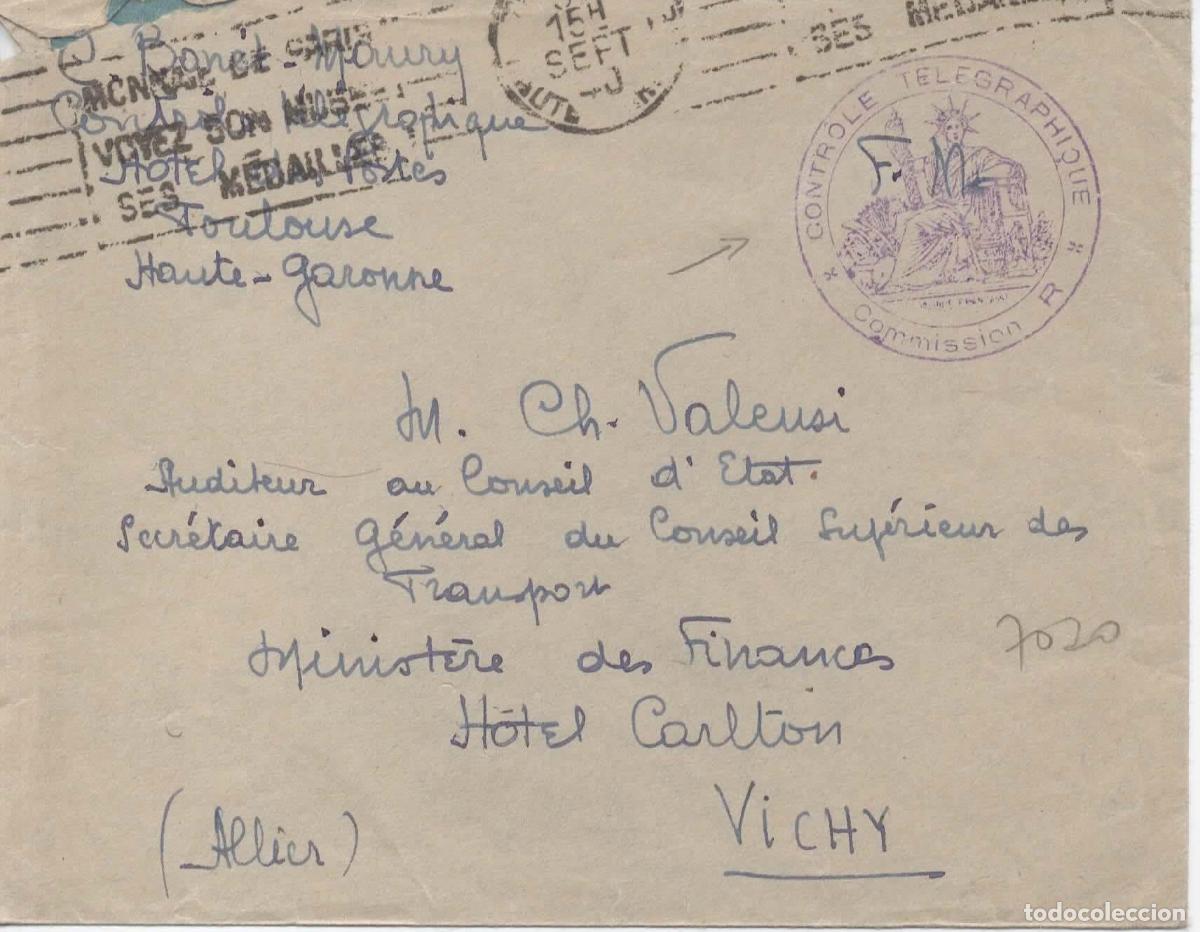 J Bonet-Maury
Contrôle Télégraphique
Hôtel des Postes
Toulouse
Haute-Garonne
MONNAIE DE PARIS
VOYEZ SON MUSEE
SES MEDAILLES
15H
SEPT
HAUTE
SES MEDAILLES
CONTROLE TELEGRAPHIQUE
F. M.
Commission R
M. Ch. Valensi
Auditeur au Conseil d'Etat.
Secrétaire Général du Conseil Supérieur des
Transport
Ministère des Finances
7020
Hôtel Carlton
VICHY
(Allier)
todocoleccion